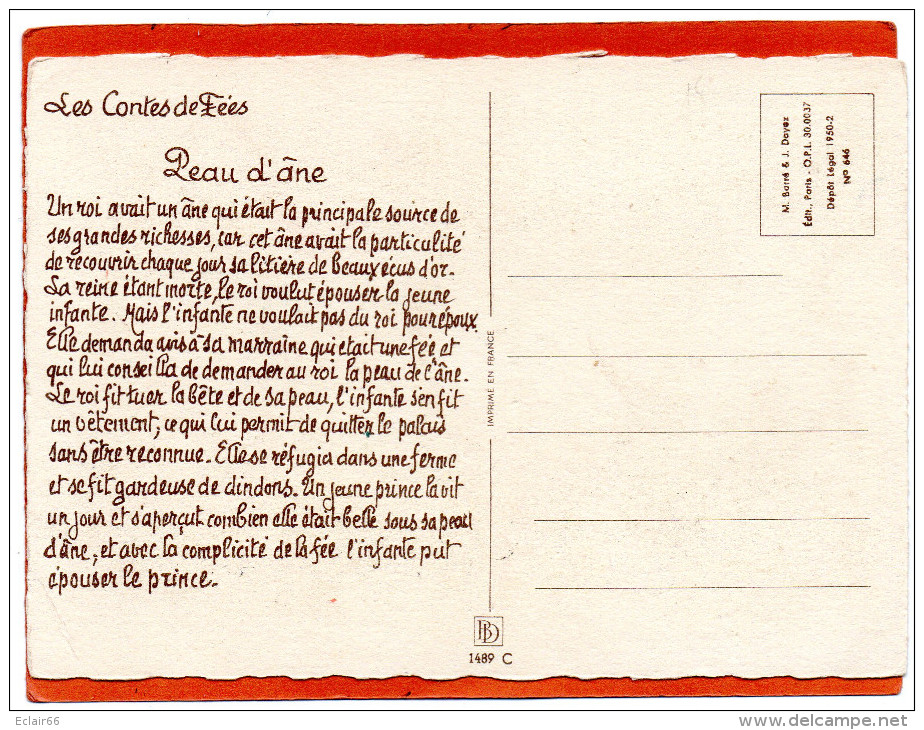 Les Contes de Fées
Peau d'âne
Un roi avait un âne qui était la principale source de
ses grandes richesses, car cet âne avait la particulité
de recouvrir chaque jour sa litière de beaux écus d'or.
La reine étant morte, le roi voulut épouser la jeune
infante. Mais l'infante ne voulait pas du roi pour époux
Elle demanda avis à sa marraine qui était une fée et
qui lui conseilla de demander au roi la peau de l'âne.
Le roi fit tuer la bête et de sa peau, l'infante s'en fit
un vêtement, ce qui lui permit de quitter le palais
sans être reconnue. Elle se réfugia dans une ferme
et se fit gardeuse de dindons. Un jeune prince la vit
un jour et s'aperçut combien elle était belle sous sa peau
d'âne, et avec la complicité de la fée l'infante put
épouser le prince.
IMPRIMÉ EN FRANCE
BD
1489 C
M. Barré & J. Dayez
Édit., Paris - O.P.L. 30.0037
Dépôt Légal 1950-2
N° 646
Eclair66
www.delcampe.net